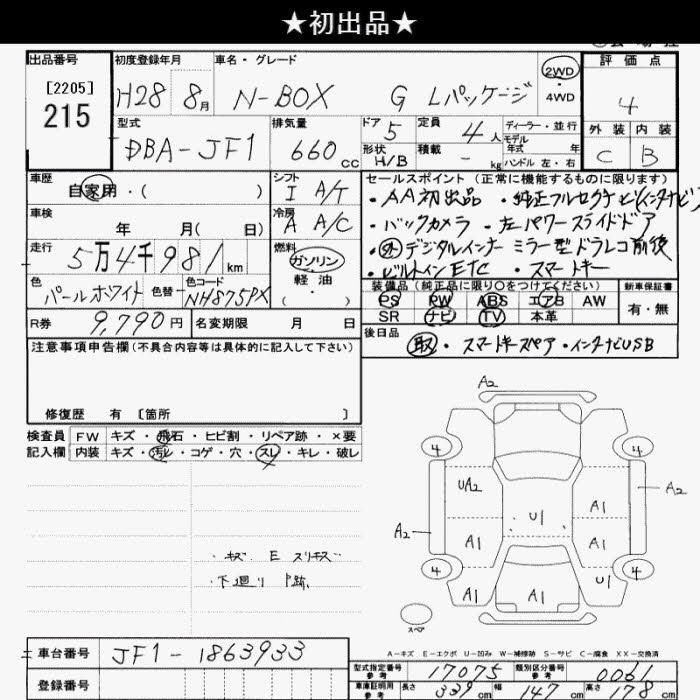 ★初出品★
出品番号
[2205]
215
初度登録年月
H28 8月
車名・グレード
N-BOX G Lパッケージ
2WD
・
4WD
評価点
4
外装 内装
C B
型式
DBA-JF1
排気量
660cc
ドア 5
形状 H/B
定員 4人
積載 - kg
ディーラー・並行
モデル
年式 年
ハンドル 左・右
車歴
自家用・( )
車検
年 月( 日)
走行
5万4千981km
色
パールホワイト
色替
色コード
NH875PX
シフト
I A/T
冷房
A A/C
燃料
ガソリン
軽油
( ・ )
R券 9,790円 名変期限 月 日
セールスポイント (正常に機能するものに限ります)
・AA初出品 ・純正フルセグナビ(インタナビ)
・バックカメラ ・左パワースライドドア
・外デジタルインナーミラー型ドラレコ前後
・ビルトインETC ・スマートキー
装備品(純正品に限り○をつけてください)
PS PW ABS エアB AW
SR ナビ TV 本革
新車保証書
有・無
後日品
取・スマートキースペア・インタナビUSB
注意事項申告欄(不具合内容等は具体的に記入して下さい)
修復歴 有 〔箇所 〕
検査員
記入欄
FW キズ・飛石・ヒビ割・リペア跡・×要
内装 キズ・汚レ・コゲ・穴・スレ・キレ・破レ
・キズ E スリキズ
・下廻り
A2
4 4
UA2
A2
A2
U1
A1
A1
A1
4 4
A1
U1
A1
スペア
A-キズ E-エクボ U-凹み W-補修跡 S-サビ C-腐食 XX-交換済
車台番号 JF1-1863933
登録番号
型式指定番号
参考
17075
類別区分番号
参考
0061
車庫証明用
参考
長さ 339cm 幅 147cm 高さ 178cm